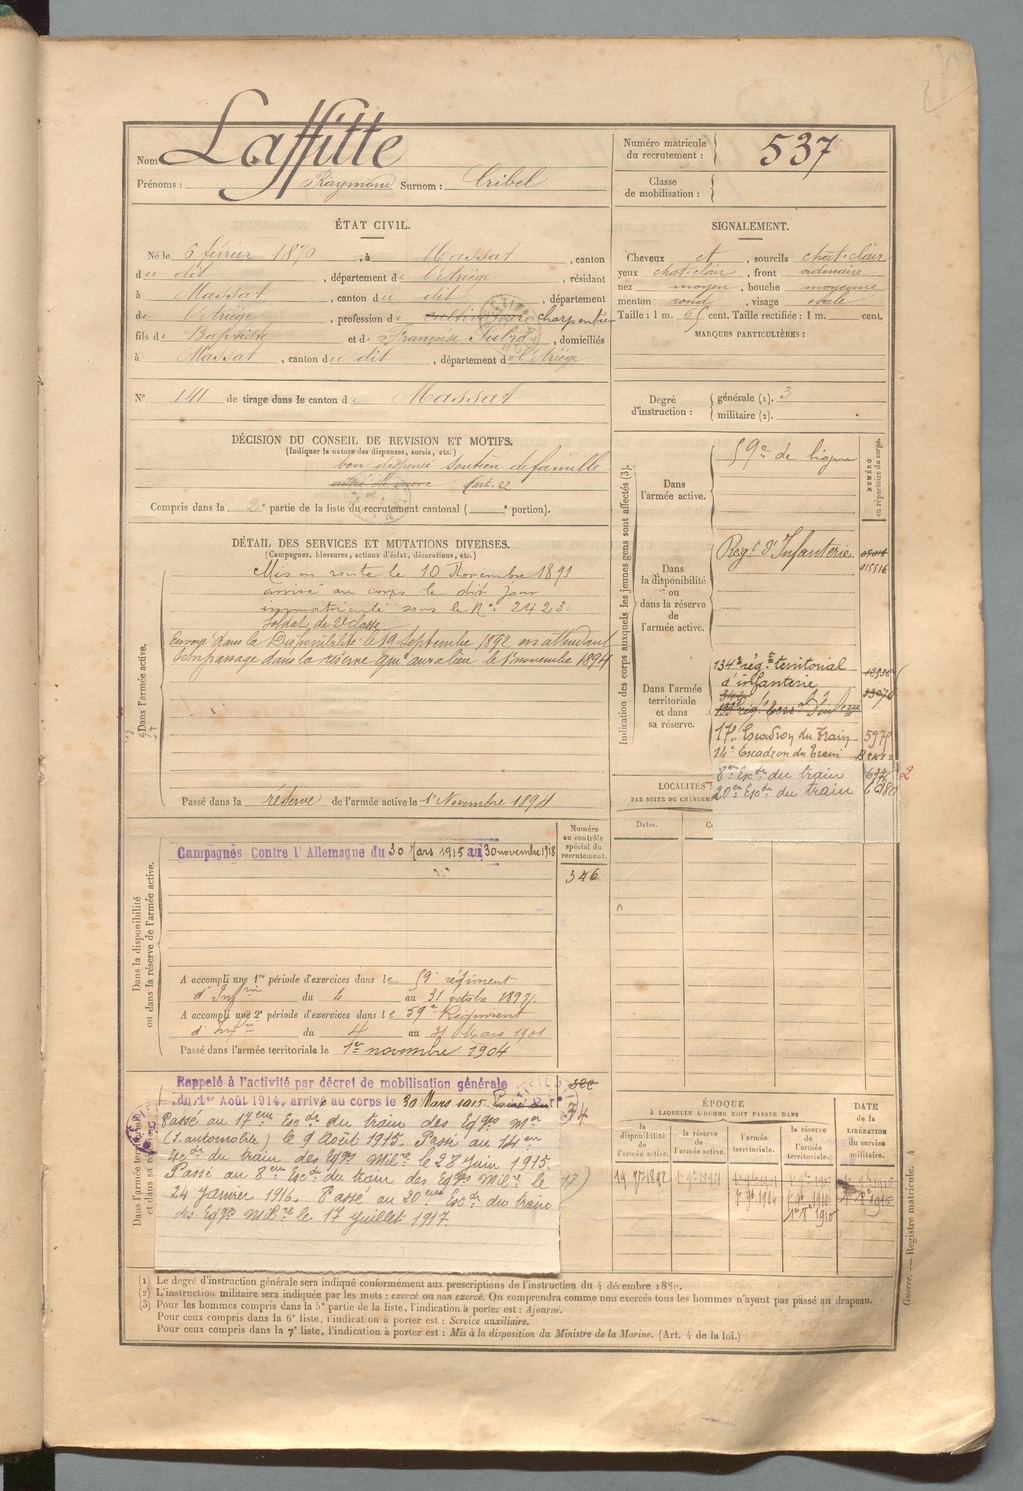 Nom Laffitte
Prénoms : Raymond Surnom : Cribel
Numéro matricule du recrutement : 537
Classe de mobilisation :
ÉTAT CIVIL.
Né le 6 février 1870, à Massat, canton
du dit, département de l'Ariège, résidant
à Massat, canton du dit, département
de l'Ariège, profession de cultivateur charpentier
fils de Baptiste et de Françoise, domiciliés
à Massat, canton du dit, département de l'Ariège
N° 141 de tirage dans le canton de Massat
SIGNALEMENT.
Cheveux et, sourcils chat-clair
yeux chat-clair, front ordinaire
nez moyen, bouche moyenne
menton rond, visage ovale
Taille : 1 m. cent. Taille rectifiée : 1 m. cent.
MARQUES PARTICULIÈRES :
Degré d'instruction : générale (1). 3
militaire (2).
DÉCISION DU CONSEIL DE REVISION ET MOTIFS.
(Indiquer la nature des dispenses, sursis, etc.)
bon dispensé soutien de famille
art. 22
Compris dans la 2e partie de la liste du recrutement cantonal ( e portion).
DÉTAIL DES SERVICES ET MUTATIONS DIVERSES.
(Campagnes, blessures, actions d'éclat, décorations, etc.)
Dans l'armée active.
Mis en route le 10 Novembre 1891
arrivé au corps le dit jour
immatriculé sous le N° 2423.
Soldat de 2e classe
Envoyé dans la Disponibilité le 19 Septembre 1892 en attendant
son passage dans la réserve qui aura lieu le 1er novembre 1894
Passé dans la réserve de l'armée active le 1er Novembre 1894
Indication des corps auxquels les jeunes gens sont affectés (3).
NUMÉRO au répertoire du corps.
Dans l'armée active.
59e de ligne
Dans la disponibilité ou dans la réserve de l'armée active.
Regt d'Infanterie
015516
Dans l'armée territoriale et dans sa réserve.
134e rég. territorial
d'infanterie
17e Escadron du Train
14e Escadron du Train
8eme Escdr du train
20eme Escdr du train
LOCALITÉS
PAR SUITE DE CHANGEM
Dates.
Dans la disponibilité ou dans la réserve de l'armée active.
Numéro au contrôle spécial du recrutement.
346
Campagnes Contre l'Allemagne du 30 Mars 1915 au 30 novembre 1918
A accompli une 1re période d'exercices dans le 59e régiment
d'Infrie du 4 au 31 octobre 1897.
A accompli une 2e période d'exercices dans le 59e Régiment
d'Infrie du 4 au 31 Mars 1901
Passé dans l'armée territoriale le 1er novembre 1904
Dans l'armée territoriale et dans sa réserve
Rappelé à l'activité par décret de mobilisation générale
du 1er Août 1914, arrivé au corps le 30 Mars 1915. Passé au
Passé au 17eme Escdr du train des Eqges Mre
(S. automobile) le 9 Août 1915. Passé au 14eme
Escdr du train des Eqges Milre le 28 Juin 1915.
Passé au 8eme Escdr du train des Eqges Milre le
24 Janvier 1916. Passé au 20eme Escdr du train
des Eqges Milre le 17 Juillet 1917.
ÉPOQUE
À LAQUELLE L'HOMME DOIT PASSER DANS
la disponibilité de l'armée active.
la réserve de l'armée active.
l'armée territoriale.
la réserve de l'armée territoriale.
DATE de la LIBÉRATION du service militaire.
(1) Le degré d'instruction générale sera indiqué conformément aux prescriptions de l'instruction du 4 décembre 1889.
(2) L'instruction militaire sera indiquée par les mots : exercé ou non exercé. On comprendra comme non exercés tous les hommes n'ayant pas passé au drapeau.
(3) Pour les hommes compris dans la 5e partie de la liste, l'indication à porter est : Ajourné.
Pour ceux compris dans la 6e liste, l'indication à porter est : Service auxiliaire.
Pour ceux compris dans la 7e liste, l'indication à porter est : Mis à la disposition du Ministre de la Marine. (Art. 4 de la loi.)
Guerre. — Registre matricule. 4